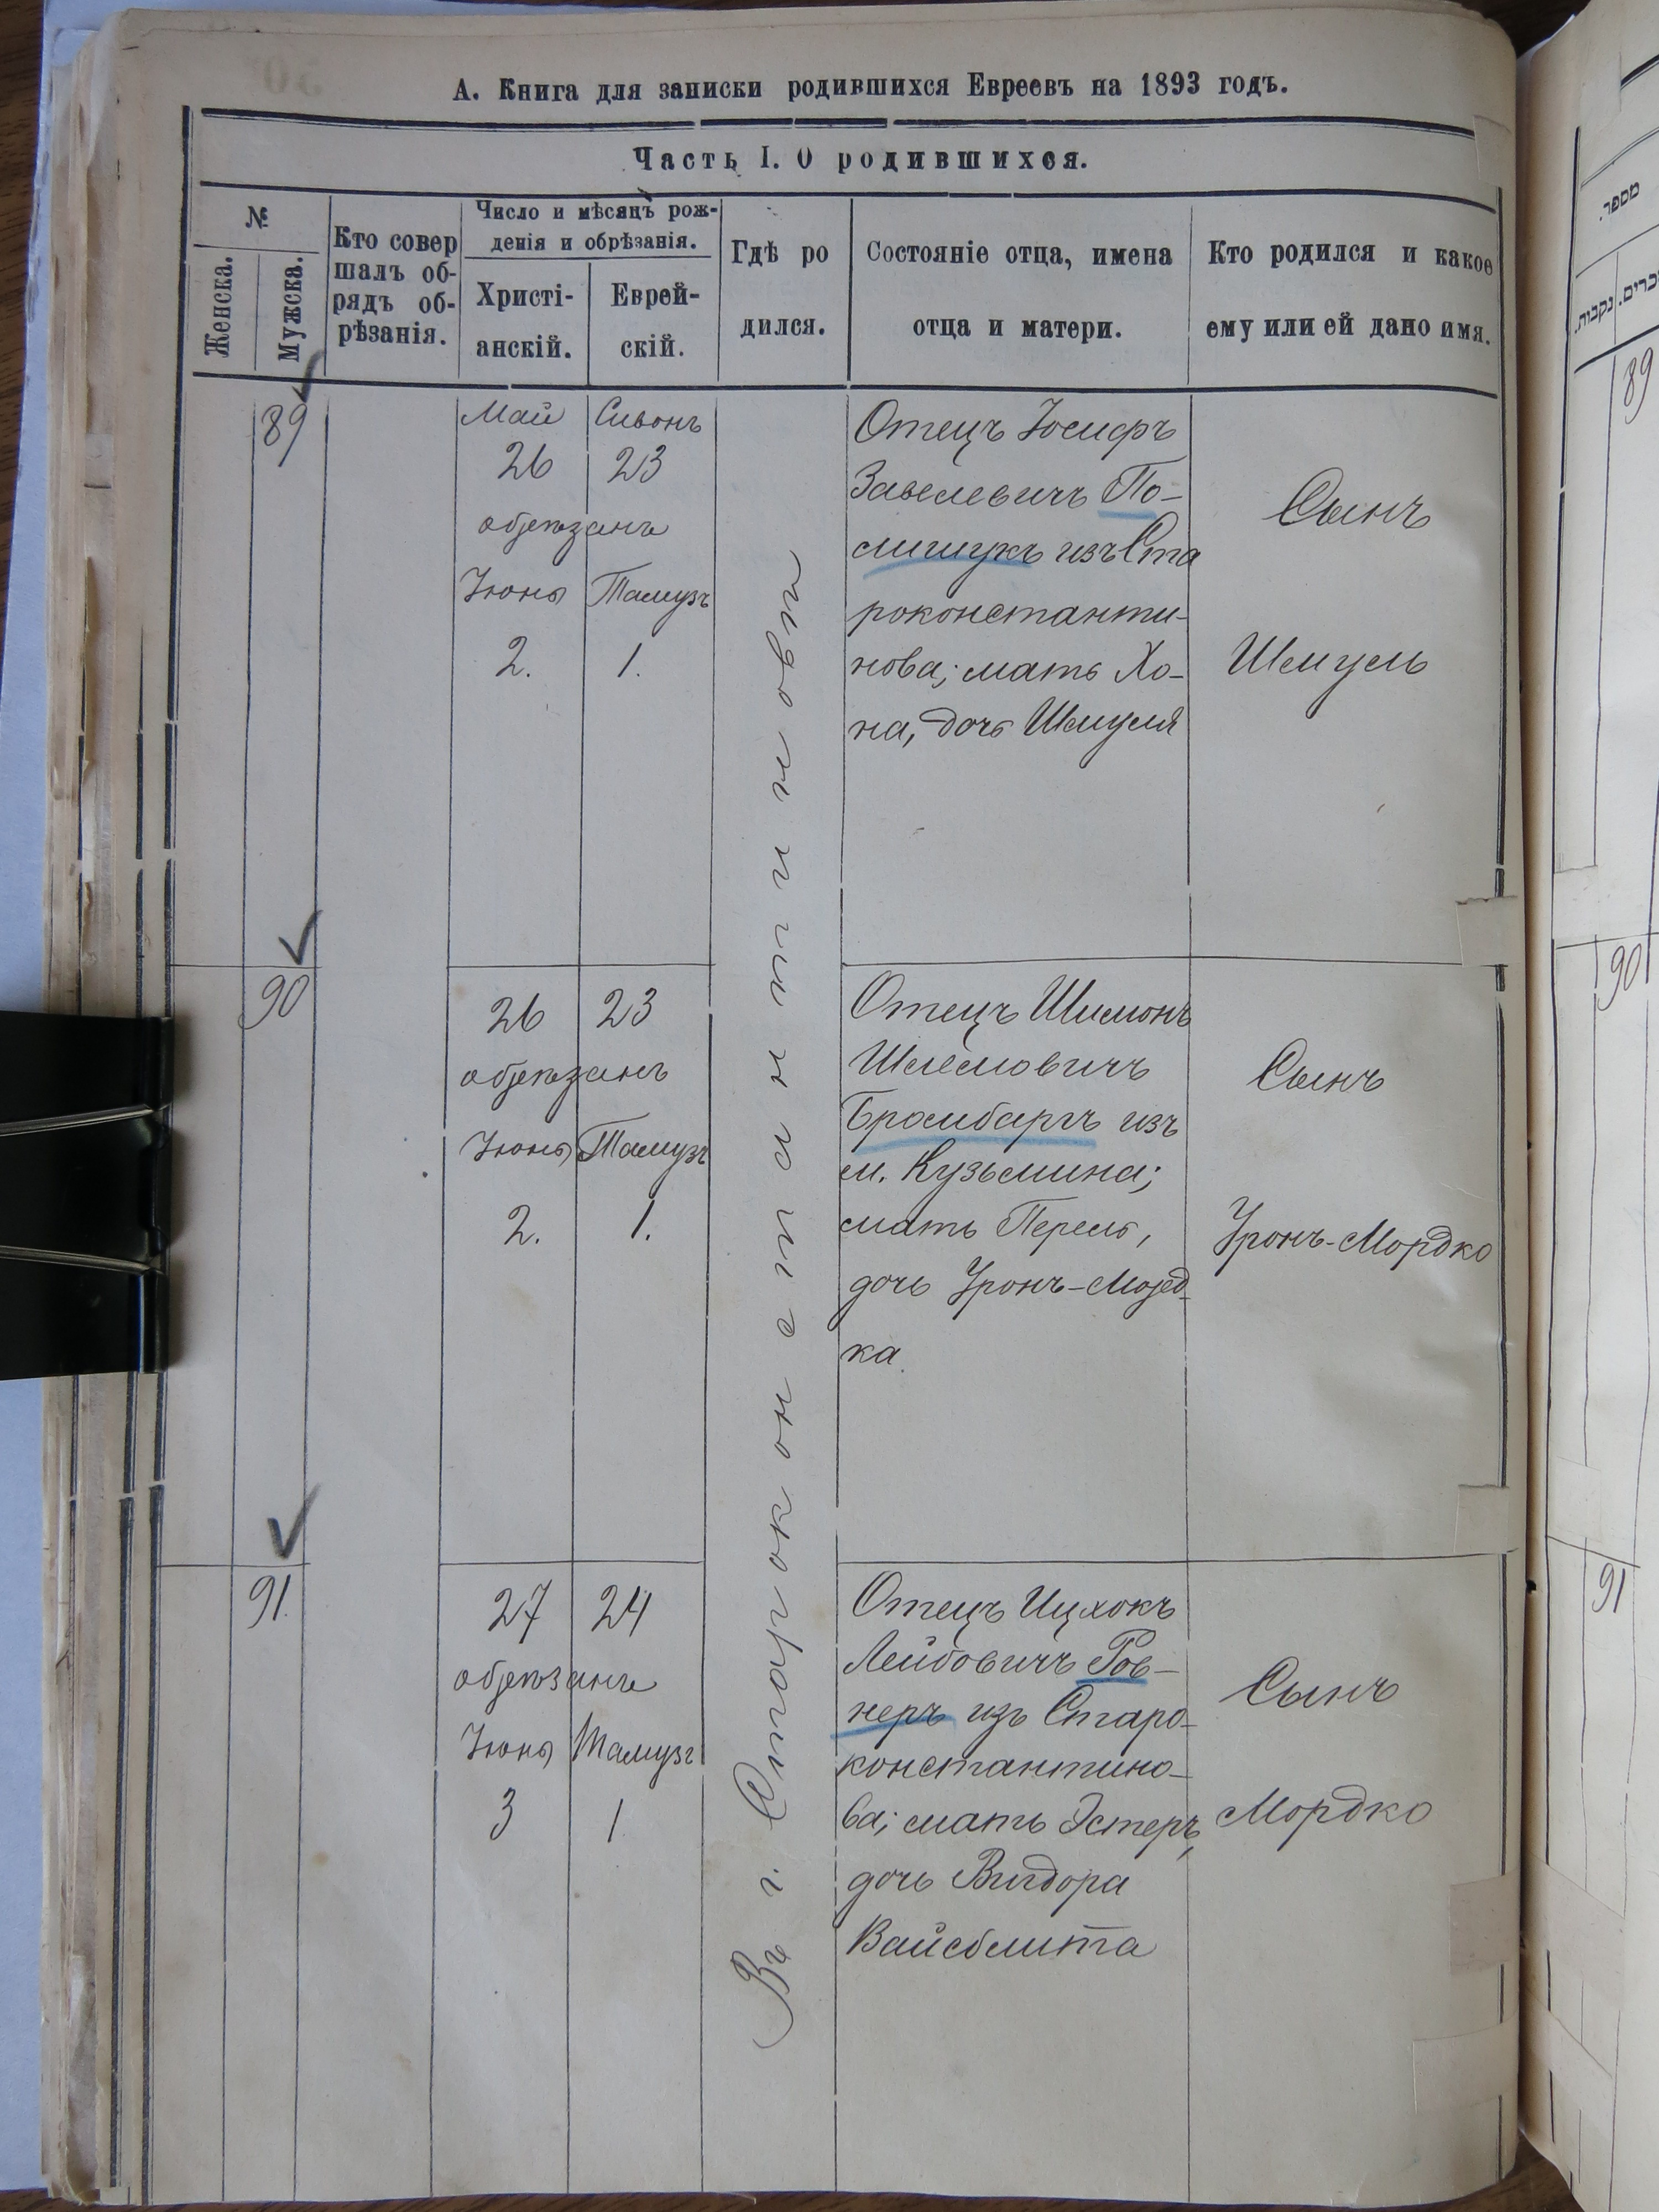 А. Книга для записки родившихся Евреевъ на 1893 годъ.
Часть I. О родившихся.
№
Женска.
Мужска.
Кто совер
шалъ об-
рядъ об-
рѣзанія.
Число и мѣсяцъ рож-
денія и обрѣзанія.
Христі-
анскій.
Еврей-
скій.
Гдѣ ро
дился.
Состояніе отца, имена
отца и матери.
Кто родился и какое
ему или ей дано имя.
Въ г. Староконстантиновѣ
89
Май Сивонъ
26 23
обрѣзанъ
Іюнь Тамузъ
2. 1.
Отецъ Іосифъ
Завелевичъ По-
лищукъ изъ Ста
роконстанти-
нова; мать Хо-
на, дочь Шмуля
Сынъ
Шмуль
90
26 23
обрѣзанъ
Іюнь Тамузъ
2. 1.
Отецъ Шимонъ
Шлемовичъ
Брамбаргъ изъ
м. Кузьмина;
мать Перель,
дочь Уронъ-Морд-
ка
Сынъ
Уронъ-Мордко
91.
27 24
обрѣзанъ
Іюнь Тамузъ
3 1
Отецъ Ицхокъ
Лейбовичъ Ров-
неръ изъ Старо-
константино-
ва; мать Эстеръ,
дочь Вигдора
Вайсблита
Сынъ
Мордко
מספר.
נקבות.
89
90
91